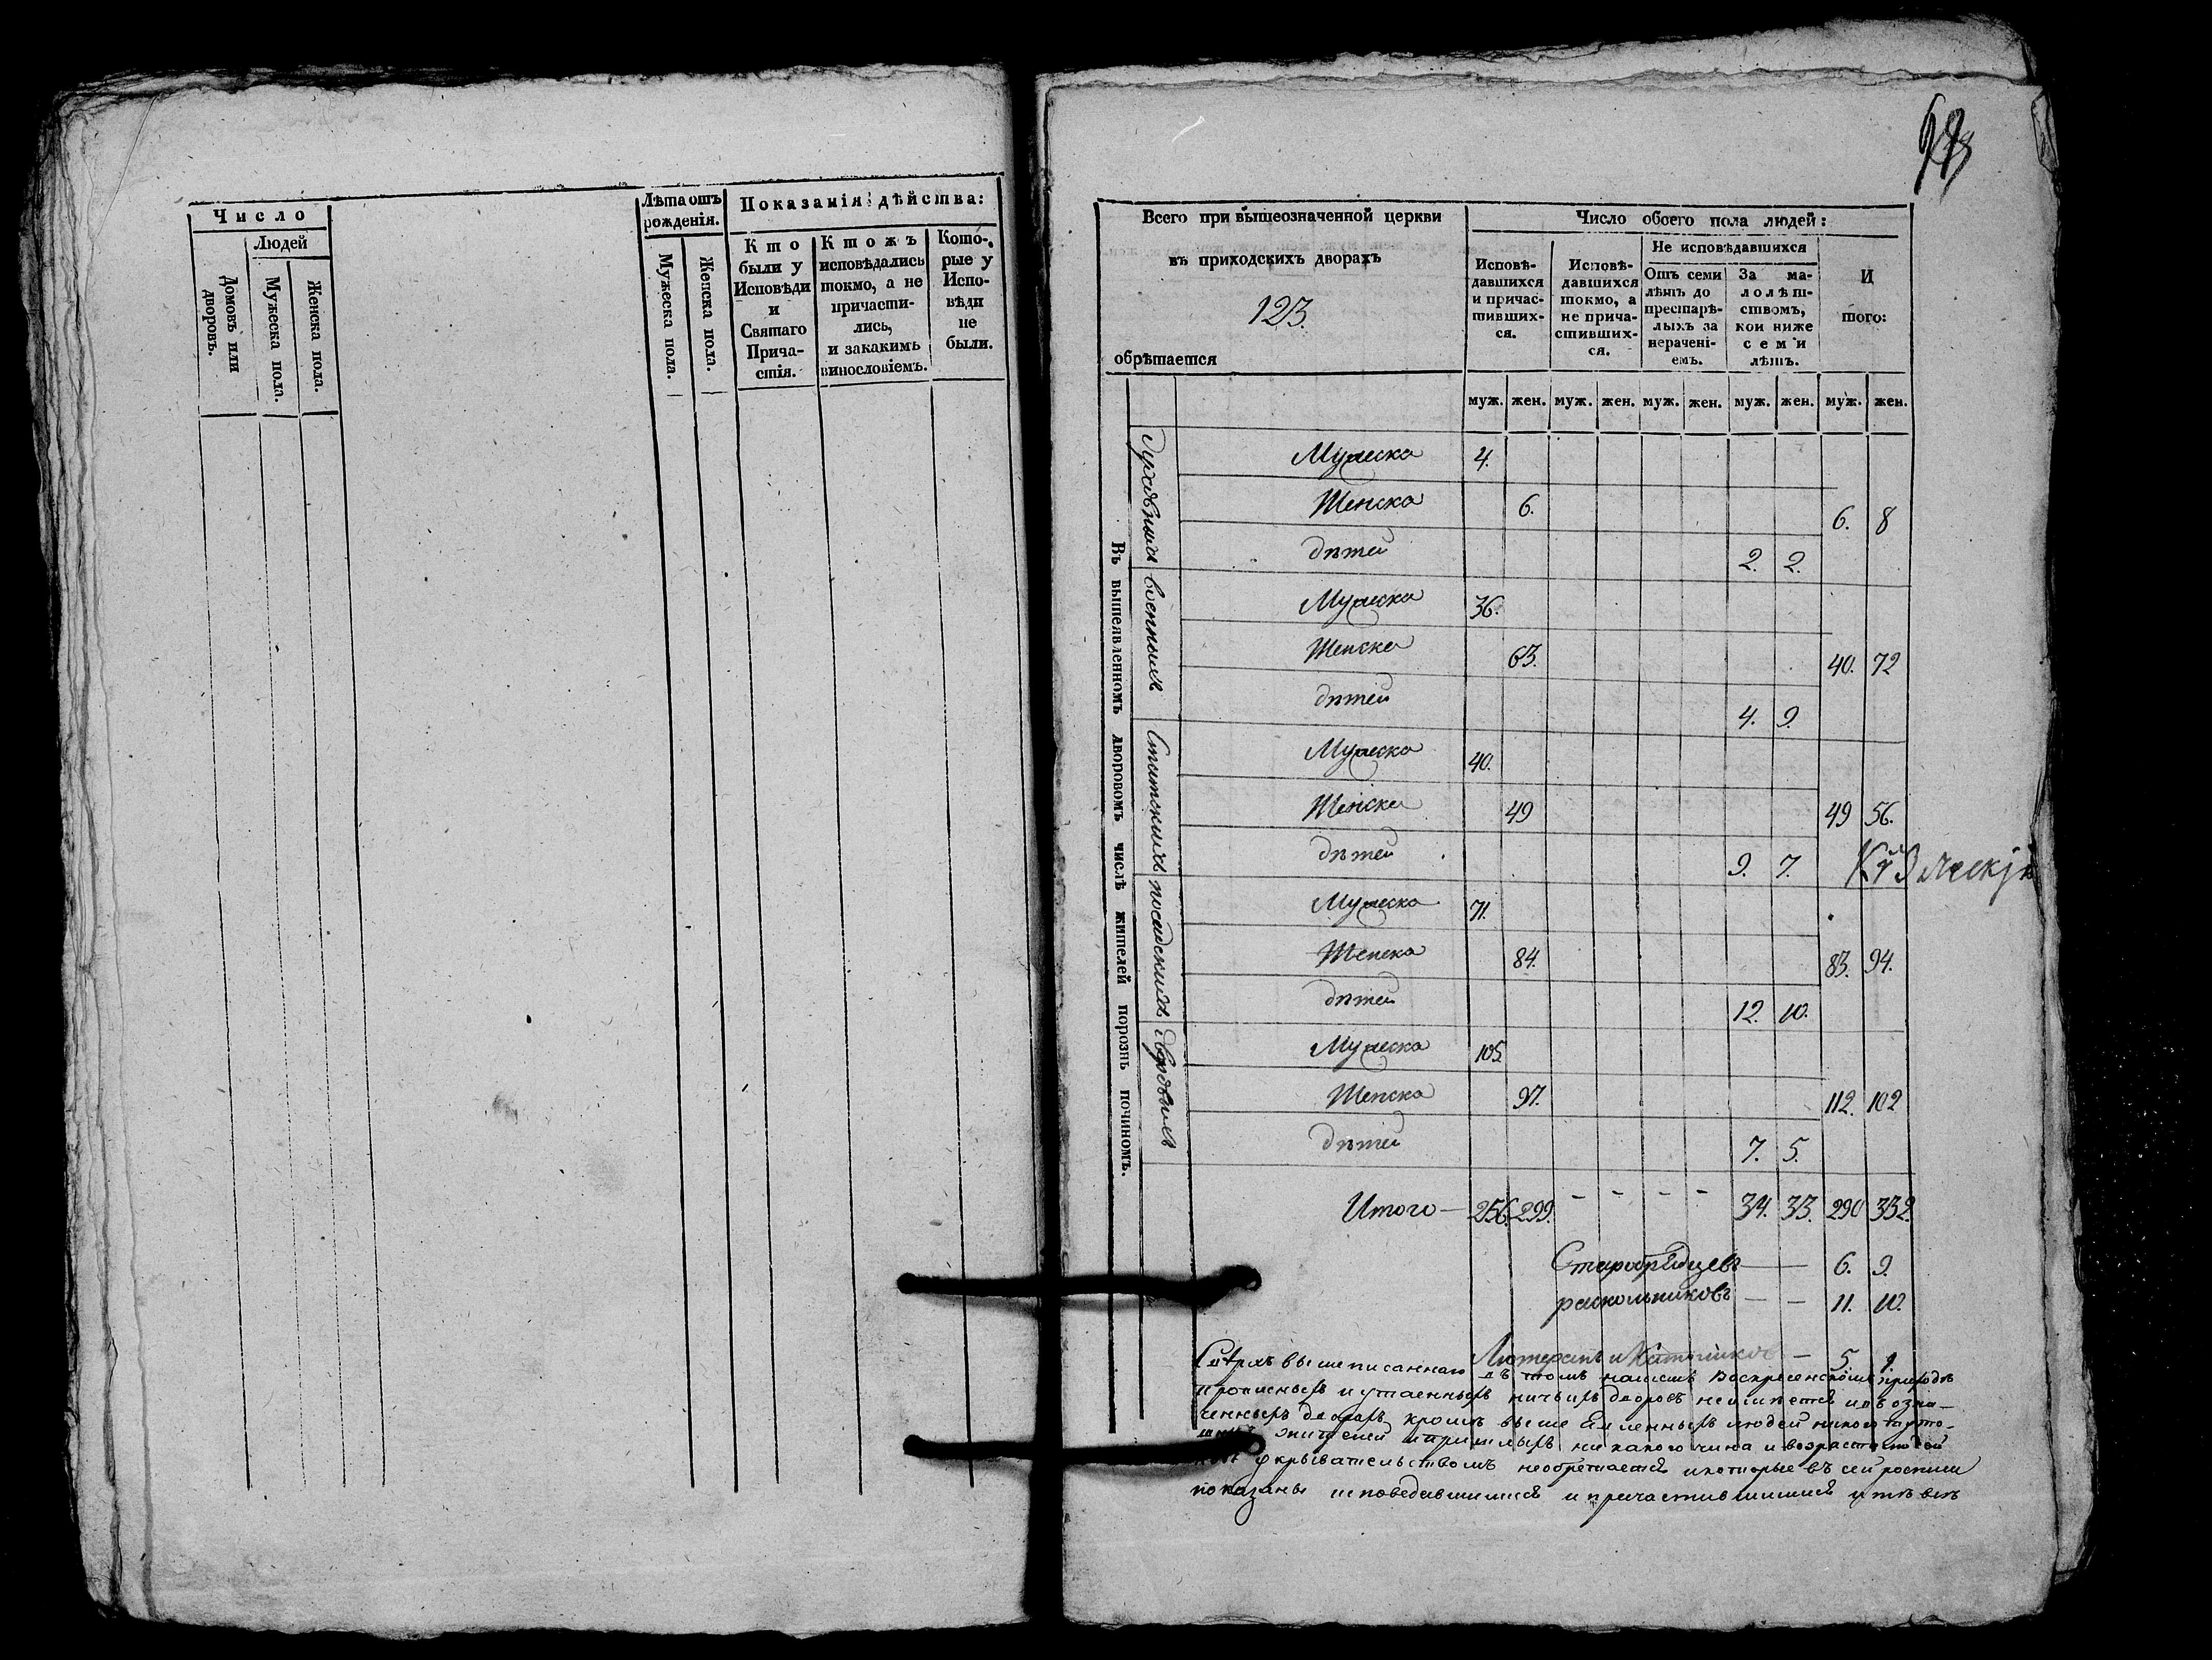 Число
Людей
Домовъ или дворовъ.
Мужеска пола.
Женска пола.
Лѣта отъ
рожденія.
Мужеска пола.
Женска пола.
Показанія дѣйства:
Кто
были у
Исповѣди
и
Святаго
Прича-
стія.
Ктожъ
исповѣдались
токмо, а не
причасти-
лись,
и закакимъ
винословіемъ.
Кото-
рые у
Испо-
вѣди
не
были.
Всего при вышеозначенной церкви
въ приходскихъ дворахъ
123.
обрѣтается
Число обоего пола людей:
Исповѣ-
давшихся
и причас-
тивших-
ся.
Исповѣ-
давшихся
токмо, а
не прича-
стивших-
ся.
Не исповѣдавшихся
Отъ семи
лѣтъ до
престарѣ-
лыхъ за
нерачені-
емъ.
За ма-
лолѣт-
ствомъ,
кои ниже
семи
лѣтъ.
И
того:
муж. жен. муж. жен. муж. жен. муж. жен. муж. жен.
Въ вышеявленномъ дворовомъ числѣ жителей порознь починомъ.
Духовныхъ
Мужеска 4.
Женска 6. 6. 8
дѣтей 2. 2.
военныхъ
Мужеска 36.
Женска 63. 40. 72
дѣтей 4. 9.
Статскихъ
Мужеска 40.
Женска 49 49 56.
дѣтей 9. 7.
посадскихъ
Мужеска 71.
Женска 84. 83. 94.
дѣтей 12. 10.
дворовыхъ
Мужеска 105.
Женска 97. 112. 102
дѣтей 7. 5.
Итого — 256. 299. - - - - 34. 33. 290 332.
Старобрядцевъ — — 6. 9.
раскольниковъ — — 11. 10.
Лютеранъ и Католиковъ — 5. 1.
вышеписаннаго въ томъ нашемъ Воскресенскомъ приходѣ
прописныхъ и утаенныхъ ничьихъ дворовъ неимѣется и въ озна-
ченныхъ дворахъ кромѣ выше явленныхъ людей никого
жителей и пришлыхъ ни какого чина и возраста людей
укрывательствомъ необретается и которые въ сей росписи
показаны исповедавшимися и причастившимися и тѣ всѣ